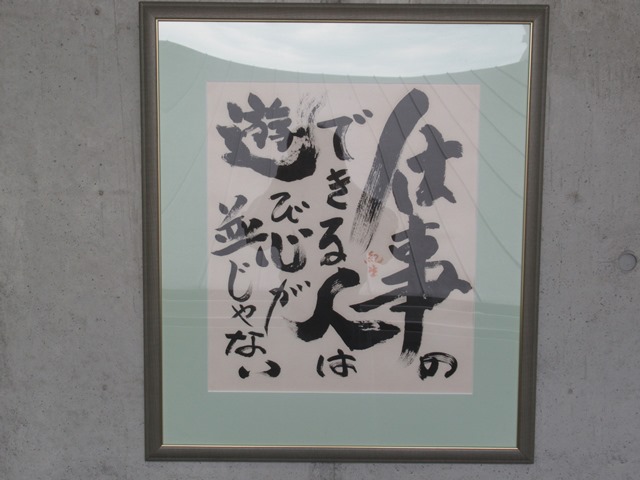 仕事の
できる人は
遊び心が
並じゃない